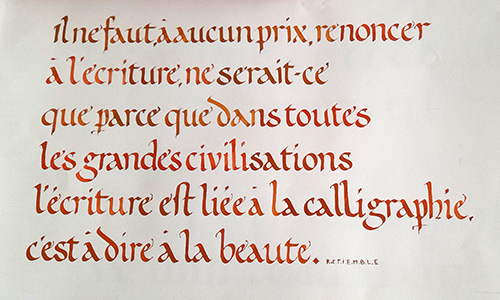 il ne faut, à aucun prix, renoncer
à l'écriture, ne serait-ce
que parce que dans toutes
les grandes civilisations
l'écriture est liée à la calligraphie,
c'est à dire à la beauté. R.E.T.I.E.M.B.L.E